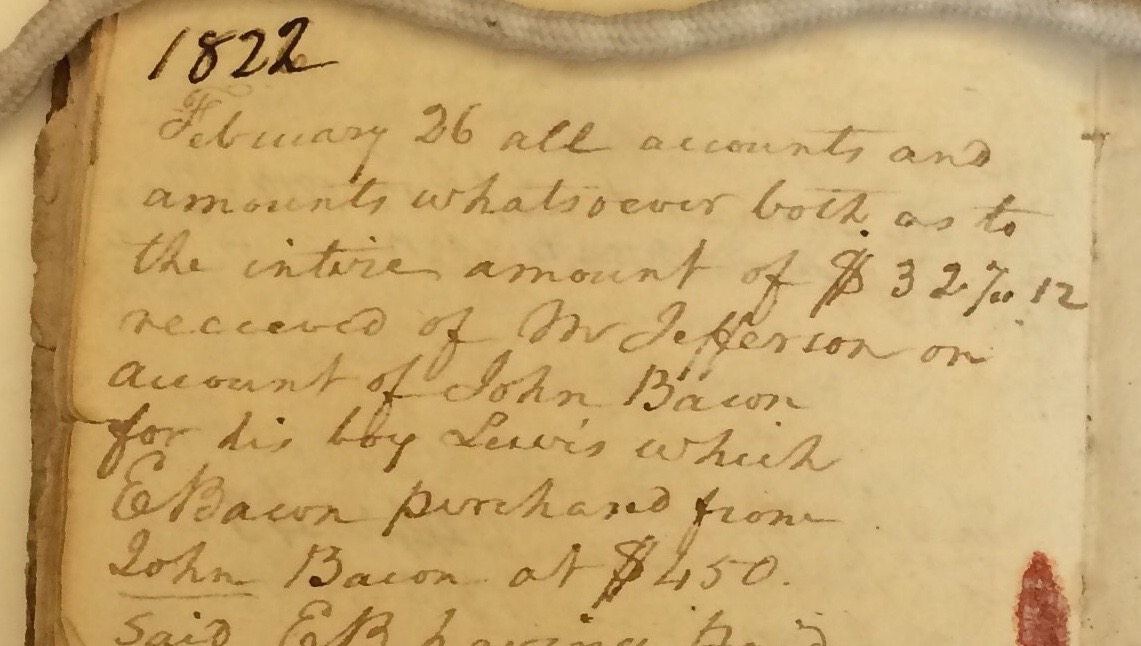 1822
February 26 all accounts and
amounts whatsoever both as to
the intire amount of $ 32
recieved of Mr Jefferson on
account of John Bacon
for his boy Lewis which
E Bacon purchased from
John Bacon at $450.
said EB having